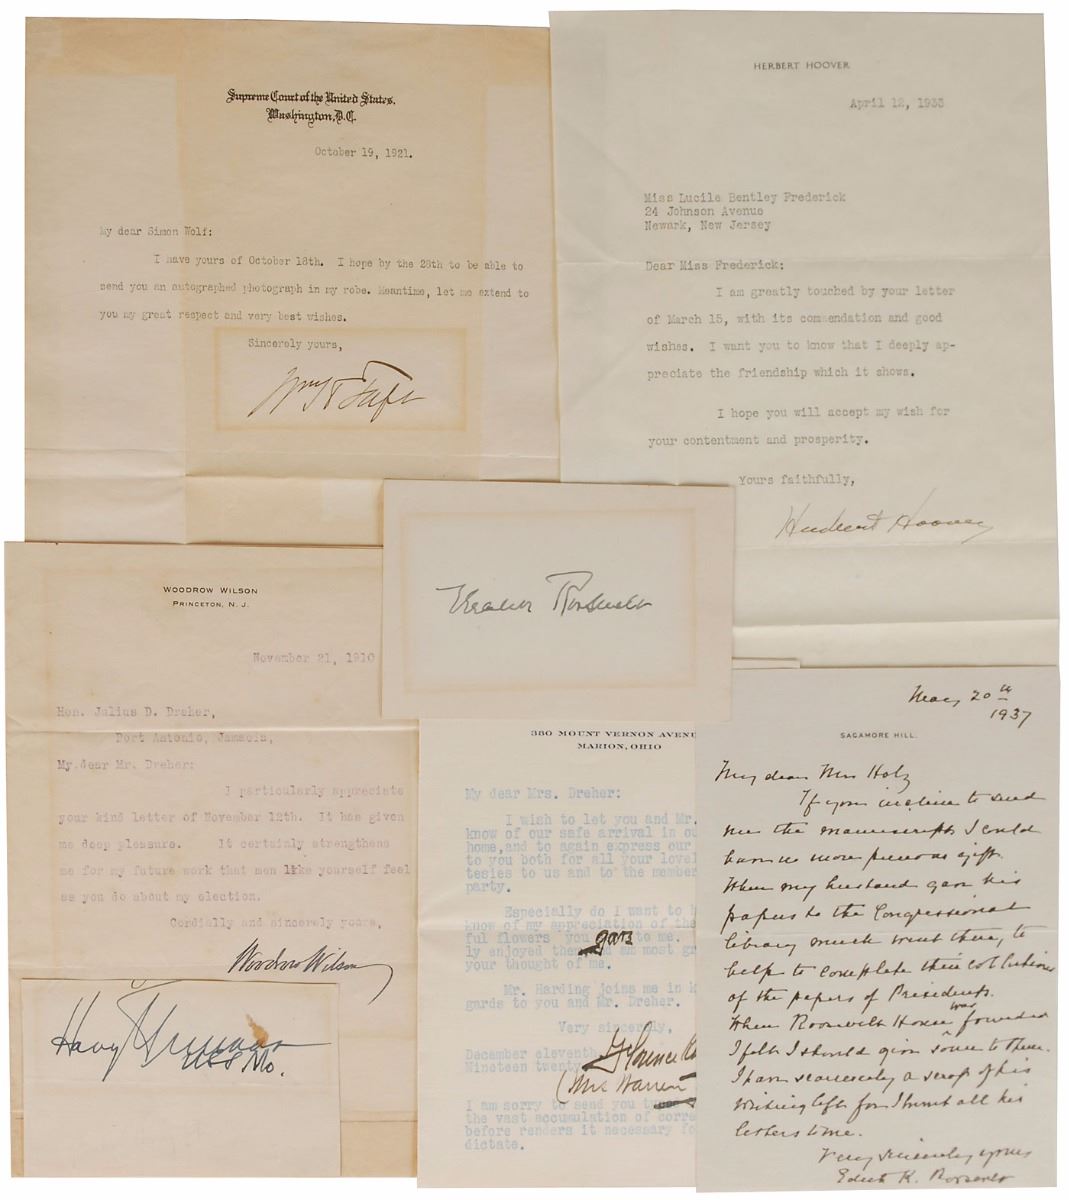 Supreme Court of the United States.
Washington, D.C.
October 19, 1921.
My dear Simon Wolf:
I have yours of October 18th. I hope by the 28th to be able to
send you an autographed photograph in my robe. Meantime, let me extend to
you my great respect and very best wishes.
Sincerely yours,
Wm H Taft
HERBERT HOOVER
April 12, 1933
Miss Lucile Bentley Frederick
24 Johnson Avenue
Newark, New Jersey
Dear Miss Frederick:
I am greatly touched by your letter
of March 15, with its commendation and good
wishes. I want you to know that I deeply ap-
preciate the friendship which it shows.
I hope you will accept my wish for
your contentment and prosperity.
Yours faithfully,
Herbert Hoover
Eleanor Roosevelt
WOODROW WILSON
PRINCETON, N. J.
November 21, 1910
Hon. Julius D. Dreher,
Port Antonio, Jamacia,
My dear Mr. Dreher:
I particularly appreciate
your kind letter of November 12th. It has given
me deep pleasure. It certainly strengthens
me for my future work that men like yourself feel
as you do about my election.
Cordially and sincerely yours,
Woodrow Wilson
Harry S Truman
USS Mo.
380 MOUNT VERNON AVENU
MARION, OHIO
My dear Mrs. Dreher:
I wish to let you and Mr.
know of our safe arrival in ou
home, and to again express our
to you both for all your lovel
tesies to us and to the member
party.
Especially do I want to
know of my appreciation of the
ful flowers you gave to me.
ly enjoyed them and am most gr
your thought of me.
Mr. Harding joins me in k
gards to you and Mr. Dreher.
Very sincerely,
December eleventh
Nineteen twenty
Florence
(Mrs Warren
I am sorry to send you
the vast accumulation of corre
before renders it necessary fo
dictate.
May 20th
1937
SAGAMORE HILL.
My dear Mrs Holz
If you incline to send
me the manuscripts I could
have no more precious gift.
When my husband gave his
papers to the Congressional
library much went there to
help to complete their collections
of the papers of Presidents.
When Roosevelt House was founded
I felt I should give some to them.
I have scarcely a scrap of his
writing left for I burnt all his
letters to me.
Very sincerely yours
Edith K. Roosevelt